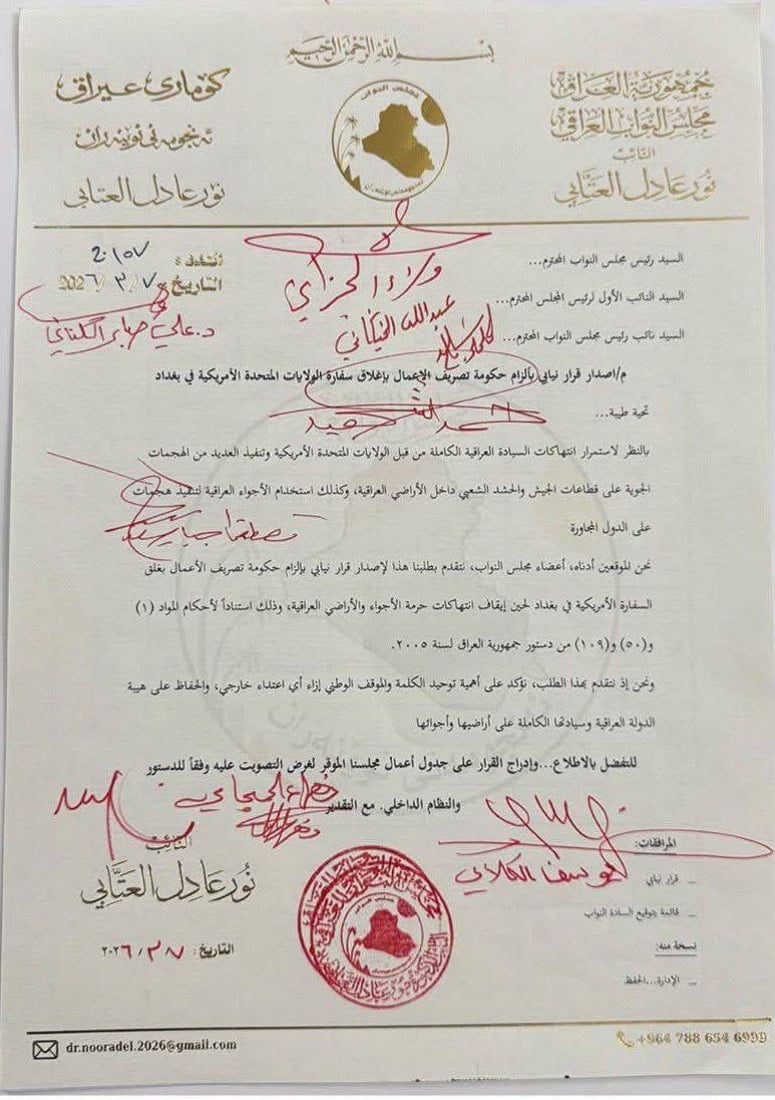 بسم الله الرحمن الرحيم
جمهورية العراق
مجلس النواب العراقي
النائب
نور عادل العتابي
كوماری عیراق
ئه نجومه نی نوینه ران
نور عادل العتابي
مجلس النواب
العدد: ٢٠١٥٧
التاريخ: ٢٠٢٦/٣/٧
السيد رئيس مجلس النواب المحترم...
السيد النائب الأول لرئيس المجلس المحترم...
السيد نائب رئيس مجلس النواب المحترم...
ولاء الخزاعي
د. علي صابر الكناني
م/اصدار قرار نيابي بإلزام حكومة تصريف الإعمال بإغلاق سفارة الولايات المتحدة الأمريكية في بغداد
تحية طيبة...
بالنظر لاستمرار انتهاكات السيادة العراقية الكاملة من قبل الولايات المتحدة الأمريكية وتنفيذ العديد من الهجمات
الجوية على قطاعات الجيش والحشد الشعبي داخل الأراضي العراقية، وكذلك استخدام الأجواء العراقية لتنفيذ هجمات
على الدول المجاورة
نحن الموقعين أدناه، أعضاء مجلس النواب، نتقدم بطلبنا هذا لإصدار قرار نيابي بإلزام حكومة تصريف الأعمال بغلق
السفارة الأمريكية في بغداد لحين إيقاف انتهاكات حرمة الأجواء والأراضي العراقية، وذلك استناداً لأحكام المواد (١)
و(٥٠) و(١٠٩) من دستور جمهورية العراق لسنة ٢٠٠٥.
ونحن إذ نتقدم بهذا الطلب، نؤكد على أهمية توحيد الكلمة والموقف الوطني إزاء أي اعتداء خارجي، والحفاظ على هيبة
الدولة العراقية وسيادتها الكاملة على أراضيها وأجوائها
للتفضل بالاطلاع...وإدراج القرار على جدول أعمال مجلسنا الموقر لغرض التصويت عليه وفقاً للدستور
والنظام الداخلي. مع التقدير
المرافقات:
_ قرار نيابي
_ قائمة بتوقيع السادة النواب
نسخة منه:
_ الإدارة...الحفظ
يوسف الكلابي
النائب
نور عادل العتابي
التاريخ: ٢٠٢٦/٣/٧
dr.nooradel.2026@gmail.com
+964 788 654 6999